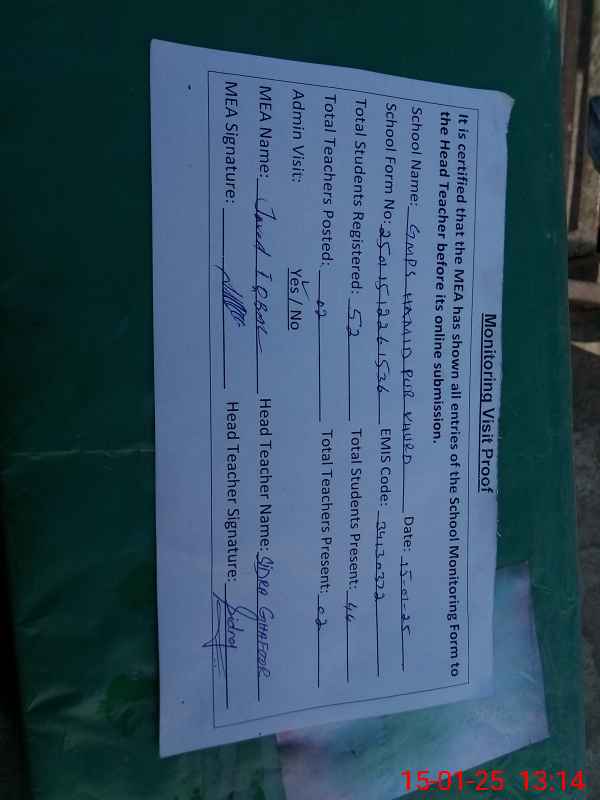 Monitoring Visit Proof
It is certified that the MEA has shown all entries of the School Monitoring Form to
the Head Teacher before its online submission.
School Name: GMPS HAMID PUR KHURD Date: 15-01-25
School Form No: 25011512261536 EMIS Code: 34130372
Total Students Registered: 52 Total Students Present: 44
Total Teachers Posted: 02 Total Teachers Present: 02
Admin Visit: Yes / No
MEA Name: Javed IQBAL Head Teacher Name: SIDRA GHAFOOR
MEA Signature: Head Teacher Signature: Sidra
15-01-25 13:14